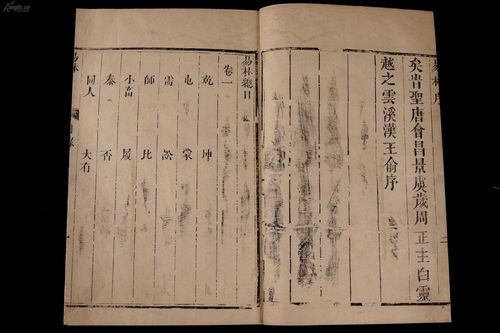 易林序
二
矣昔聖唐會昌景虞歲周正主白靈
越之雲溪漢王俞序
易林總目
卷一
乾 坤
屯 蒙
需 訟
師 比
小畜 履
泰 否
同人 大有
易林